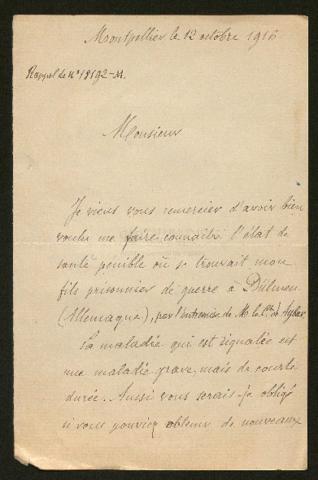 Montpellier le 12 octobre 1916
Rappel de N° 18192-M.
Monsieur
Je viens vous remercier d'avoir bien
voulu me faire connaître l'état de
santé pénible où se trouvait mon
fils prisonnier de guerre à Dülmen
(Allemagne), par l'entremise de M. le
La maladie qui est signalée est
une maladie grave, mais de courte
durée. Aussi vous serais-je obligé
si vous pouviez obtenir de nouveaux